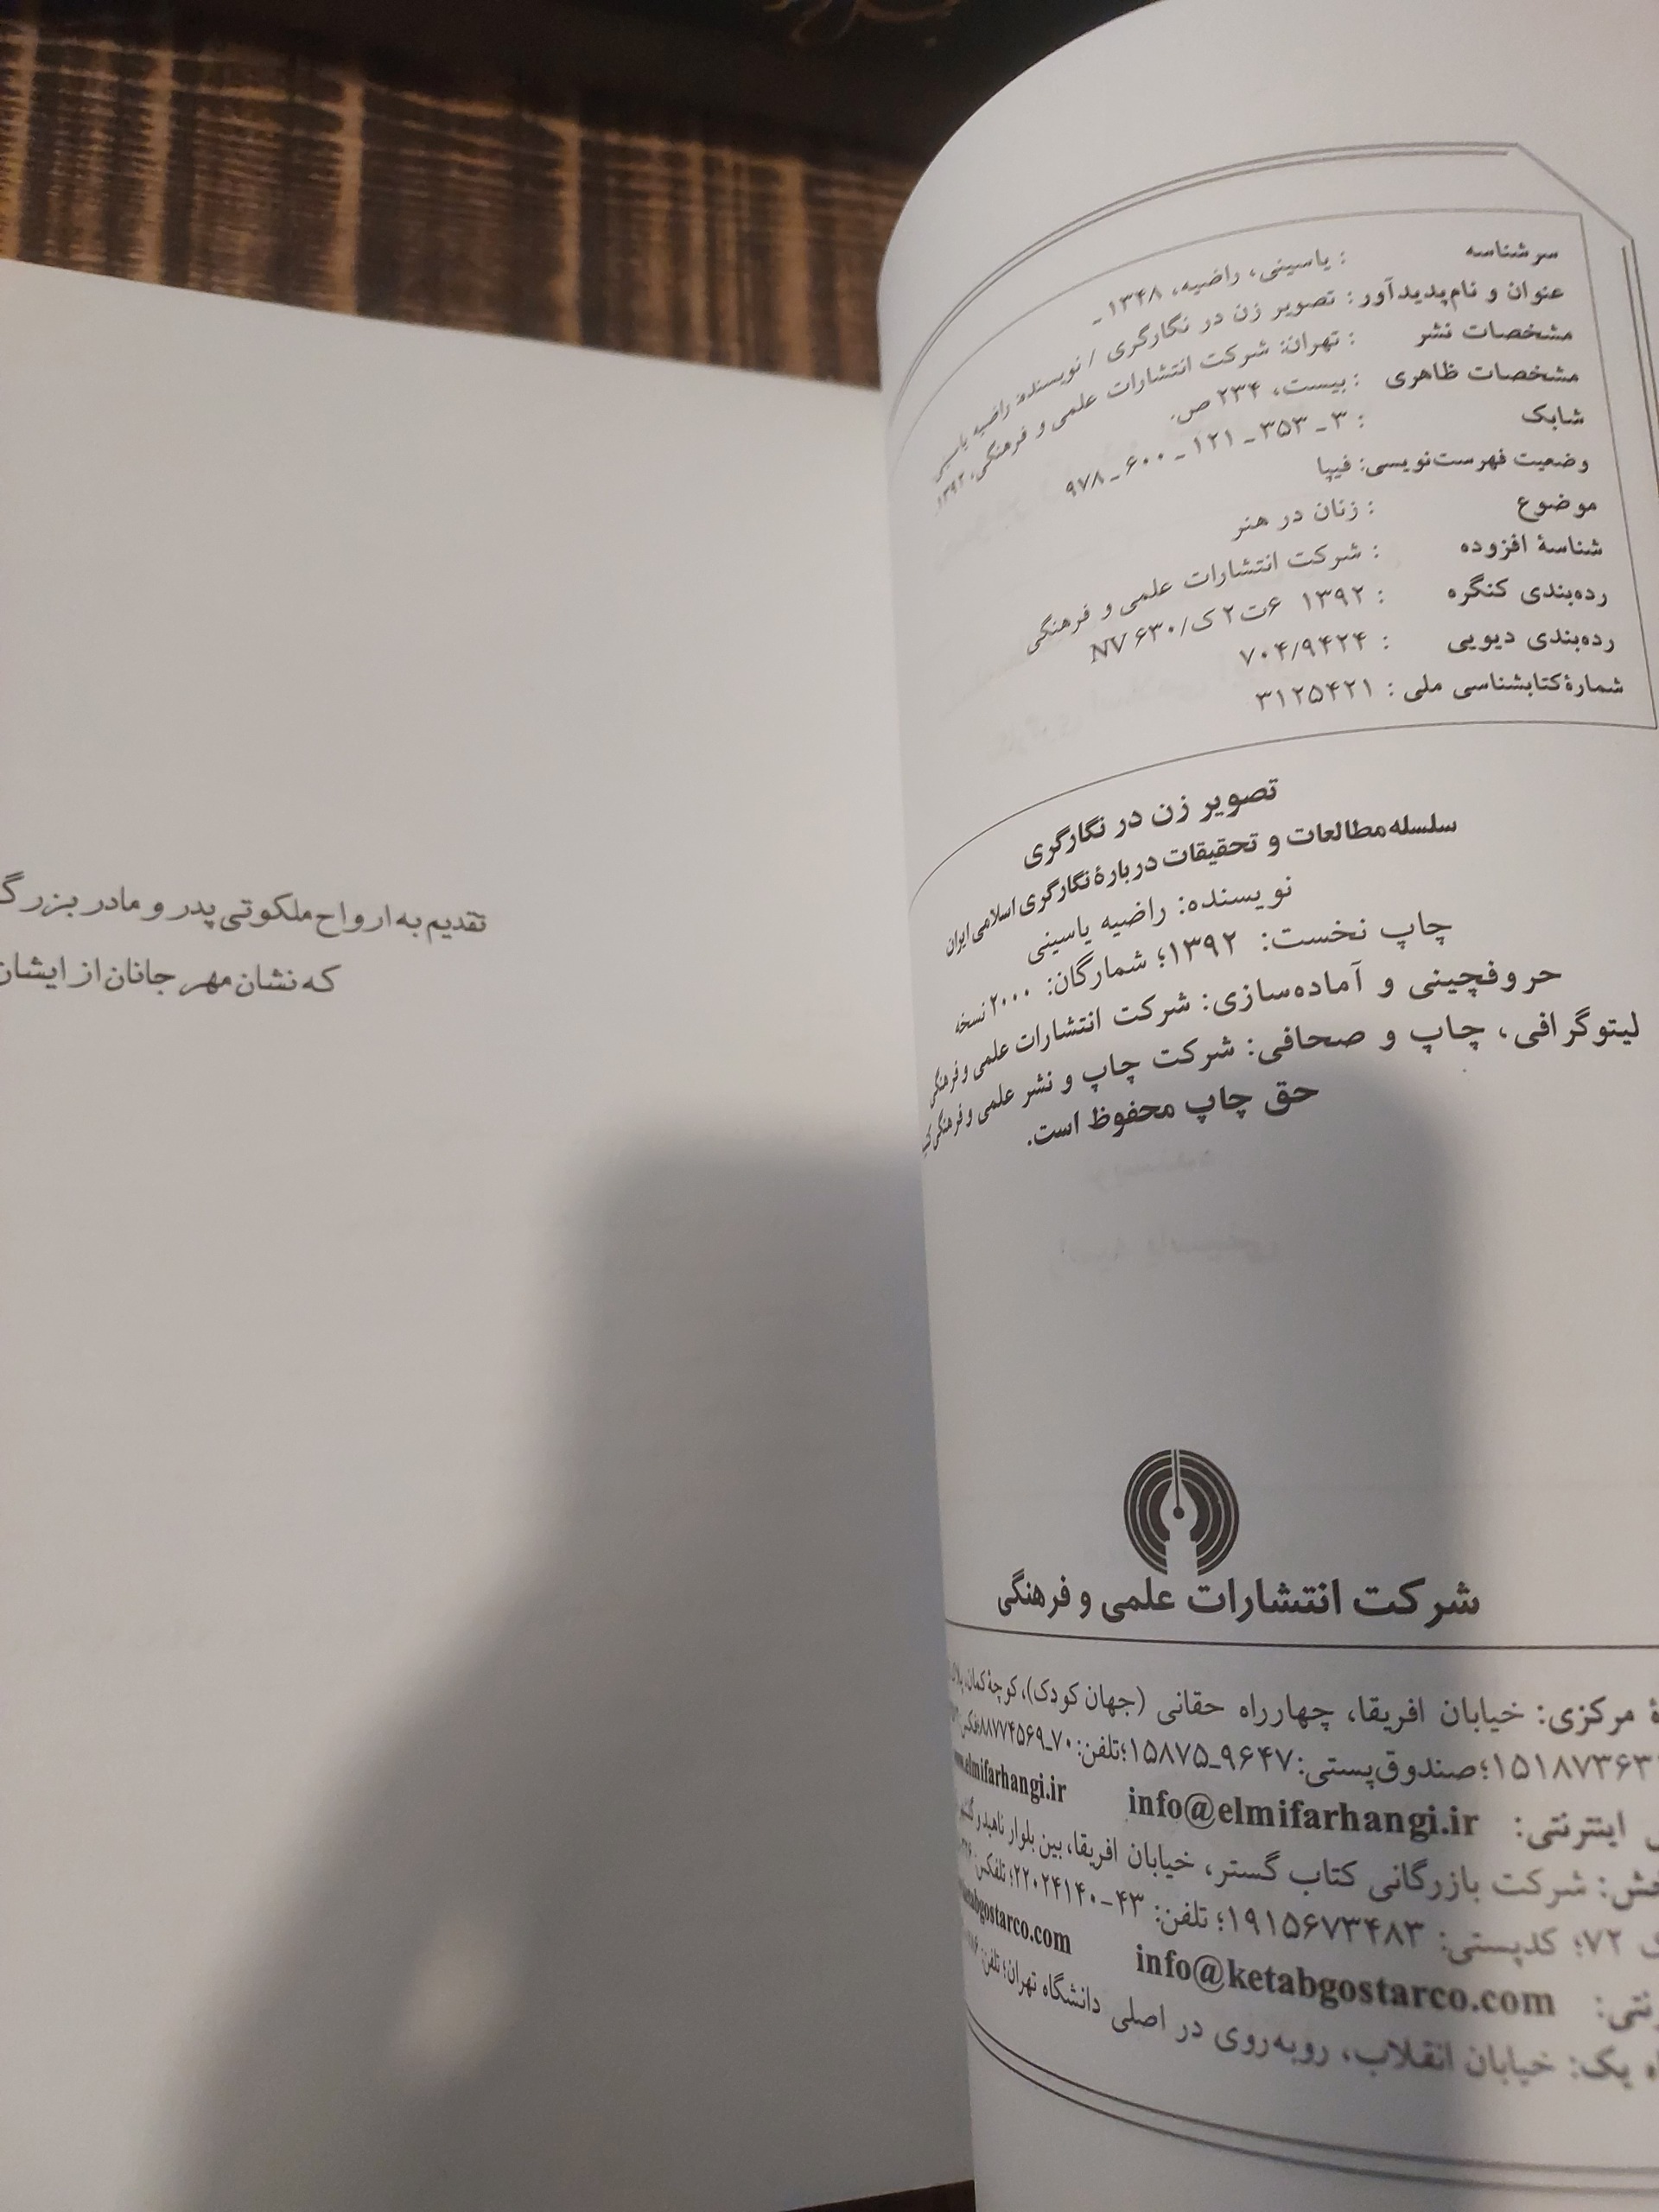 سرشناسه : یاسینی، راضیه، ۱۳۴۸ ـ
عنوان و نام‌پدیدآور : تصویر زن در نگارگری / نویسنده: راضیه یاسینی
مشخصات نشر : تهران: شرکت انتشارات علمی و فرهنگی، ۱۳۹۲
مشخصات ظاهری : بیست، ۲۳۴ ص.
شابک : ۳ ـ ۳۵۳ ـ ۱۲۱ ـ ۶۰۰ ـ ۹۷۸
وضعیت فهرست‌نویسی: فیپا
موضوع : زنان در هنر
شناسهٔ افزوده : شرکت انتشارات علمی و فرهنگی
رده‌بندی کنگره : ۱۳۹۲ ۶ت۲ک/۶۳۰ NV
رده‌بندی دیویی : ۷۰۴/۹۴۲۴
شمارهٔ کتابشناسی ملی : ۳۱۲۵۴۲۱
تصویر زن در نگارگری
سلسله مطالعات و تحقیقات دربارهٔ نگارگری اسلامی ایران
نویسنده: راضیه یاسینی
چاپ نخست: ۱۳۹۲؛ شمارگان: ۲۰۰۰ نسخه
حروفچینی و آماده‌سازی: شرکت انتشارات علمی و فرهنگی
لیتوگرافی، چاپ و صحافی: شرکت چاپ و نشر علمی و فرهنگی
حق چاپ محفوظ است.
شرکت انتشارات علمی و فرهنگی
مرکزی: خیابان افریقا، چهارراه حقانی (جهان کودک)، کوچهٔ کمان،
۱۵۱۸۷۳۶۳؛ صندوق‌پستی: ۹۶۴۷ـ۱۵۸۷۵؛ تلفن: ۷۰ـ۸۸۷۷۴۵۶۹
اینترنتی: info@elmifarhangi.ir elmifarhangi.ir
شرکت بازرگانی کتاب گستر، خیابان افریقا، بین بلوار ناهید و
۷۲؛ کدپستی: ۱۹۱۵۶۷۳۴۸۳؛ تلفن: ۴۳-۲۲۰۲۴۱۴۰؛ تلفکس:
info@ketabgostarco.com
یک: خیابان انقلاب، روبه‌روی در اصلی دانشگاه تهران؛ تلفن:
تقدیم به ارواح ملکوتی پدر و مادر
که نشان مهر جانان از ایشان